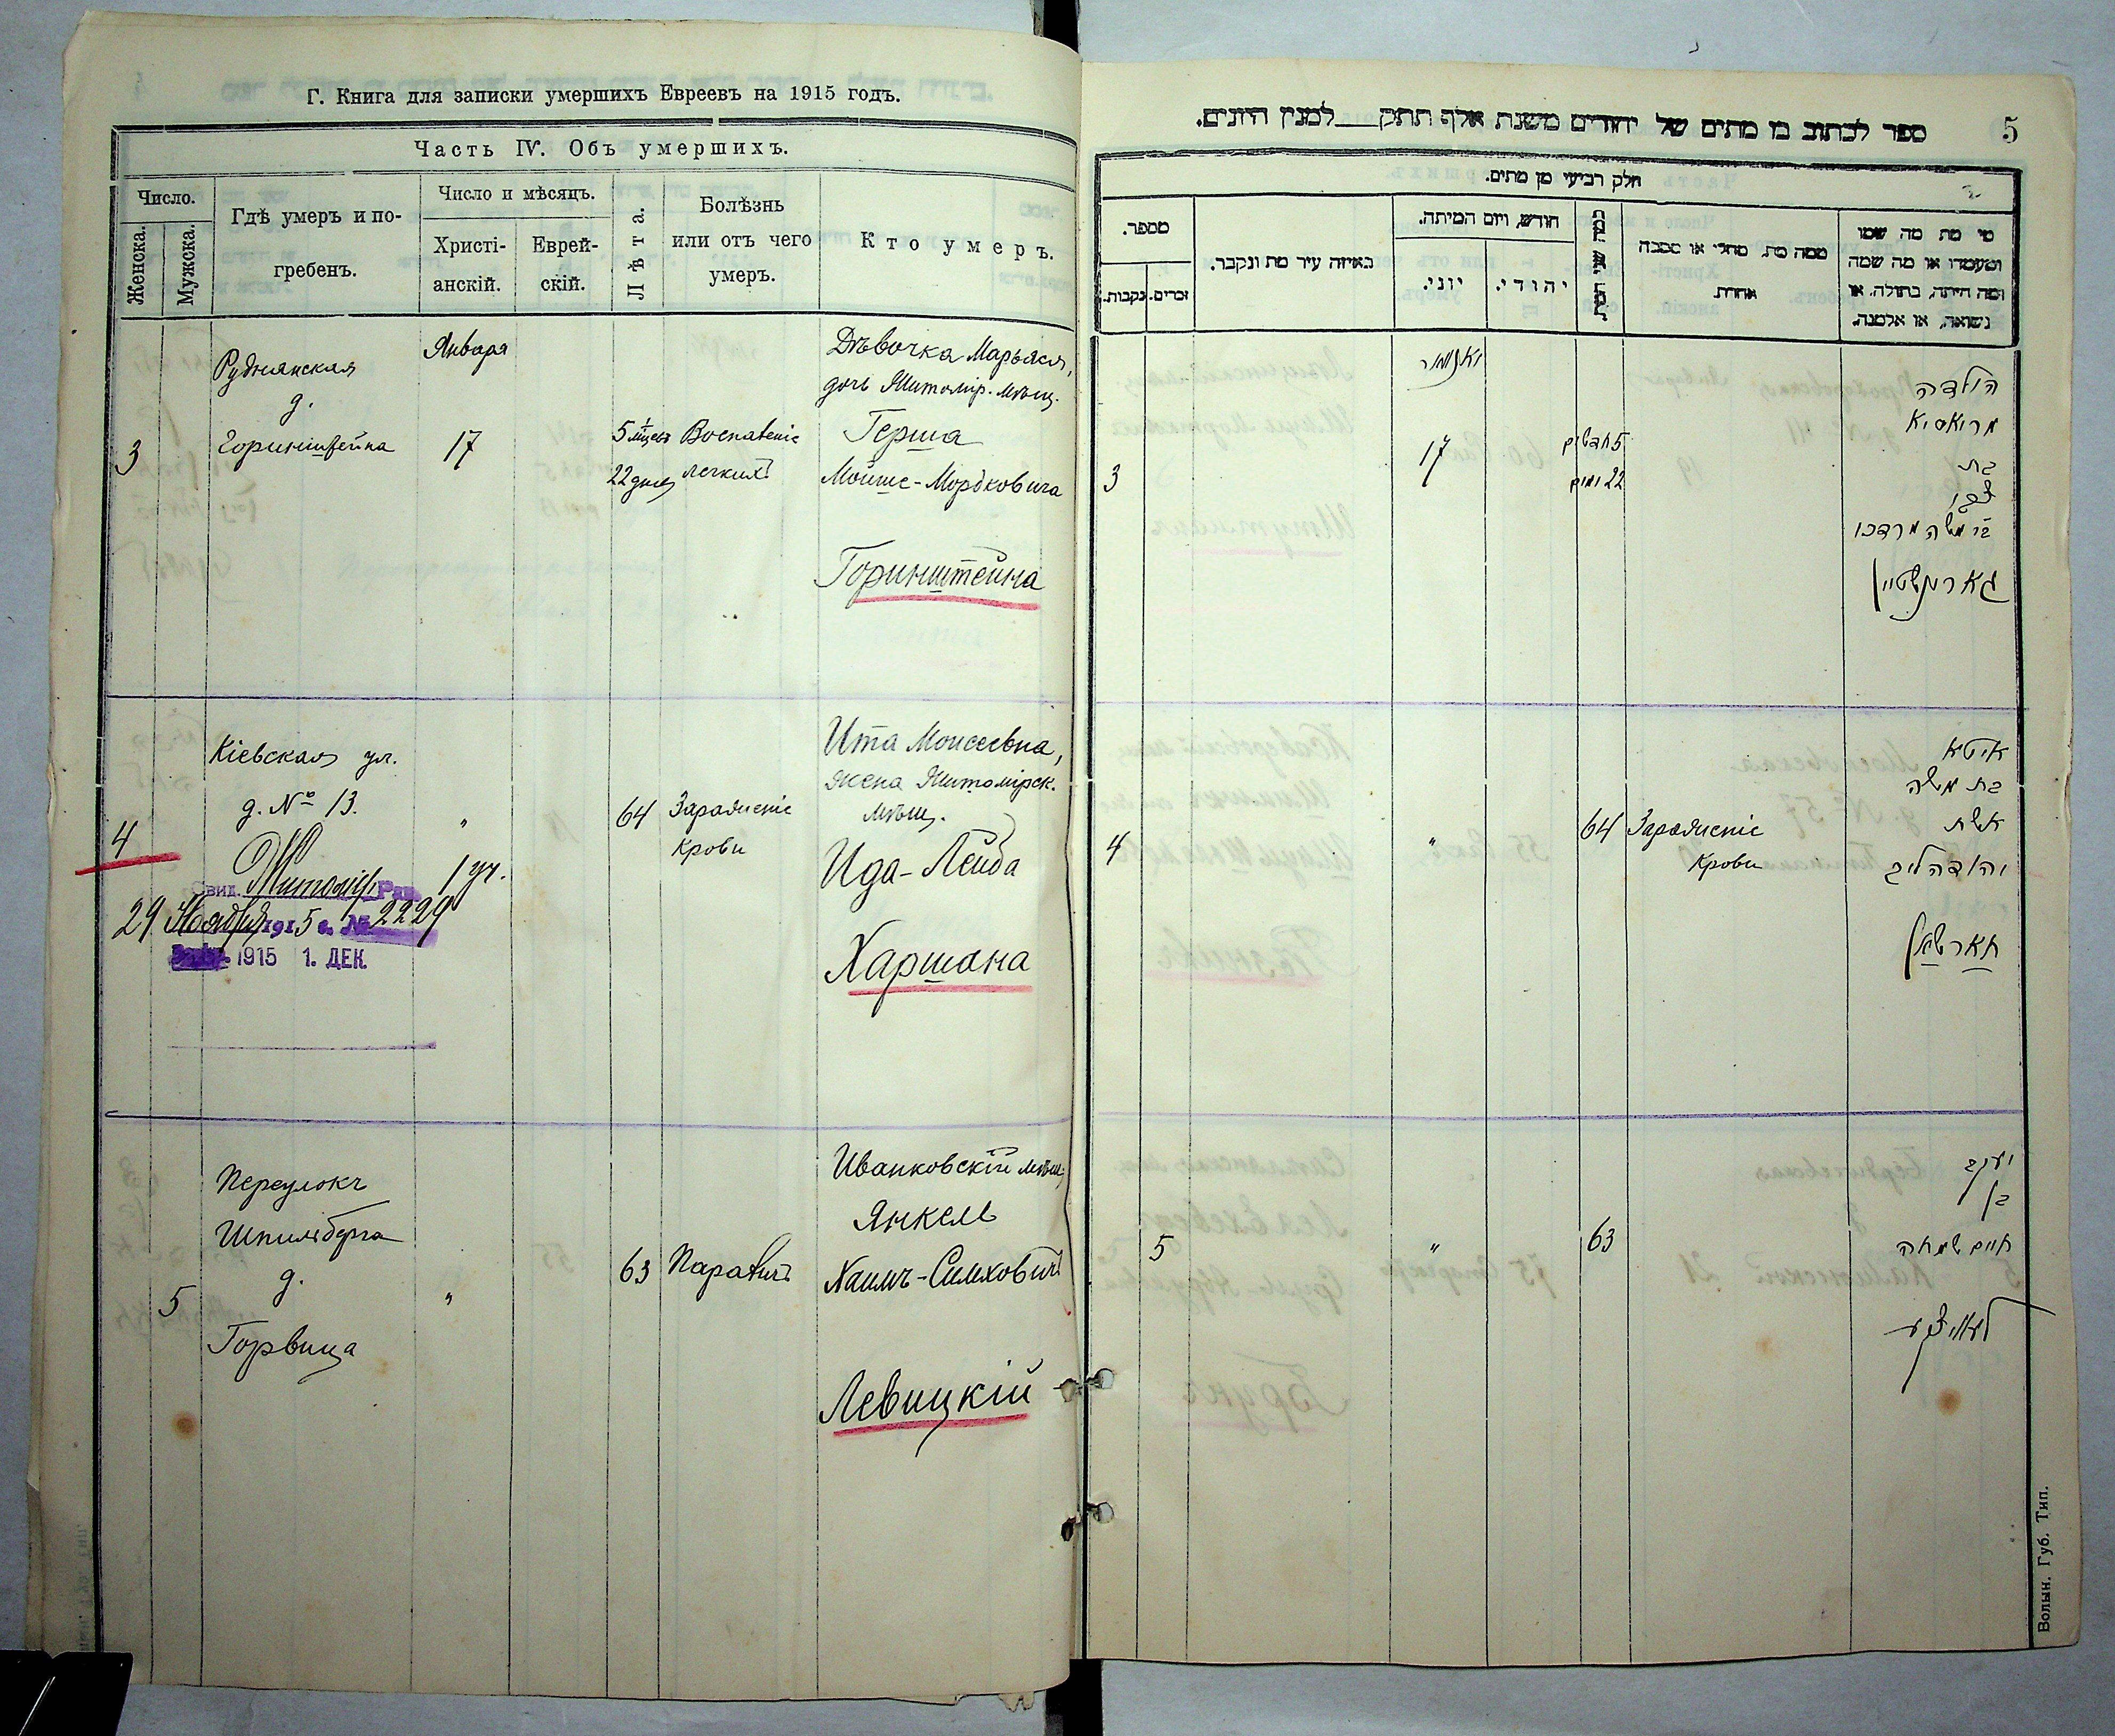 Г. Книга для записки умершихъ Евреевъ на 1915 годъ.
Часть IV. Объ умершихъ.
Число.
Женска.
Мужска.
Гдѣ умеръ и по-
гребенъ.
Число и мѣсяцъ.
Христі-
анскій.
Еврей-
скій.
Лѣта.
Болѣзнь
или отъ чего
умеръ.
Кто умеръ.
3
Руднянская
д.
Горинштейна
Января
17
5 1/2 мѣсяц.
22 дней
Воспаленіе
легкихъ
Дѣвочка Марьяся,
дочь Житомір. мѣщ.
Герша
Мойше-Мордковича
Горинштейна
4
Кіевская ул.
д. № 13.
"
64
Зараженіе
крови
Ита Моисеевна,
жена Житомірск.
мѣщ.
Ида-Лейба
Харшана
Свид. Житомір. Рав. 1 уч.
29 Ноября 1915 г. № 2229
1915 1. ДЕК.
5
Переулокъ
Шпильберга
д.
Горвица
"
63
Параличъ
Иванковскій мѣщ.
Янкель
Хаимъ-Симховичъ
Левицкій
5
ספר לכתוב בו מתים של יהודים משנת אלף תתק למנין היונים.
חלק רביעי מן מתים.
מספר.
נקבות.
זכרים.
באיזה עיר מת ונקבר.
חודש, ויום המיתה.
יוני.
יהודי.
ממה מת, מחלי או מסבה
אחרת
מי מת מה שמו
ומעמדו או מה שמה
ומה היתה, בתולה, או
נשואה, או אלמנה.
3
יאנואר
17
5 חדשים
22 ימים
הילדה
מריאסיא
בת
הערש
בר משה מרדכי
גארינשטיין
4
"
64
Зараженіе
крови
איטא
בת משה
אשת
יהודה ליב
חארשאן
5
"
63
יעקב
בן
חיים שמחה
לעוויצקי
Волын. Губ. Тип.